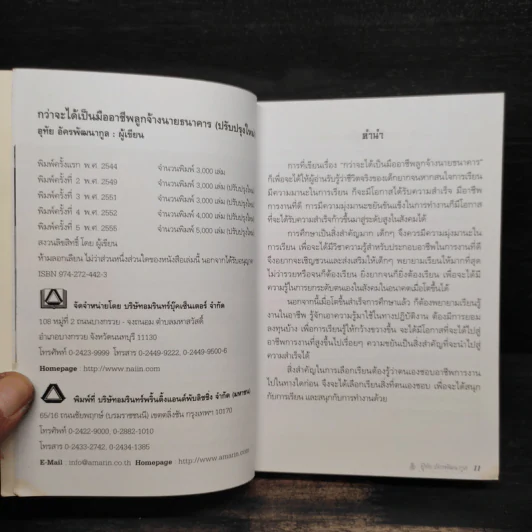 กว่าจะได้เป็นมืออาชีพลูกจ้างนายธนาคาร (ปรับปรุงใหม่)
อุทัย อัครพัฒนากูล : ผู้เขียน
พิมพ์ครั้งแรก พ.ศ. 2544 จำนวนพิมพ์ 3,000 เล่ม
พิมพ์ครั้งที่ 2 พ.ศ. 2549 จำนวนพิมพ์ 3,000 เล่ม (ปรับปรุงใหม่)
พิมพ์ครั้งที่ 3 พ.ศ. 2551 จำนวนพิมพ์ 3,000 เล่ม (ปรับปรุงใหม่)
พิมพ์ครั้งที่ 4 พ.ศ. 2552 จำนวนพิมพ์ 4,000 เล่ม (ปรับปรุงใหม่)
พิมพ์ครั้งที่ 5 พ.ศ. 2555 จำนวนพิมพ์ 5,000 เล่ม (ปรับปรุงใหม่)
สงวนลิขสิทธิ์ โดย ผู้เขียน
ห้ามลอกเลียน ไม่ว่าส่วนหนึ่งส่วนใดของหนังสือเล่มนี้ นอกจากได้รับอนุญาต
ISBN 974-272-442-3
จัดจำหน่ายโดย บริษัทอมรินทร์บุ๊คเซ็นเตอร์ จำกัด
108 หมู่ที่ 2 ถนนบางกรวย - จงถนอม ตำบลมหาสวัสดิ์
อำเภอบางกรวย จังหวัดนนทบุรี 11130
โทรศัพท์ 0-2423-9999 โทรสาร 0-2449-9222, 0-2449-9500-6
Homepage : http://www.naiin.com
พิมพ์ที่ บริษัทอมรินทร์พริ้นติ้งแอนด์พับลิชชิ่ง จำกัด (มหาชน)
65/16 ถนนชัยพฤกษ์ (บรมราชชนนี) เขตตลิ่งชัน กรุงเทพฯ 10170
โทรศัพท์ 0-2422-9000, 0-2882-1010
โทรสาร 0-2433-2742, 0-2434-1385
E-Mail : info@amarin.co.th Homepage : http://www.amarin.com
สำนำ
การที่เขียนเรื่อง "กว่าจะได้เป็นมืออาชีพลูกจ้างนายธนาคาร"
ก็เพื่อจะได้ให้ผู้อ่านรับรู้ว่าชีวิตจริงของเด็กยากจนสากสนใจการเรียน
มีความมานะในการเรียน ก็จะมีโอกาสได้รับความสำเร็จ มีอาชีพ
การงานที่ดี การมีความมุ่งมานะขยันขันแข็งในการทำงานก็มีโอกาส
ที่จะได้รับความสำเร็จก้าวขึ้นมาสู่ระดับสูงในสังคมได้
การศึกษาเป็นสิ่งสำคัญมาก เด็กๆ จึงควรมีความมุ่งมานะใน
การเรียน เพื่อจะได้มีวิชาความรู้สำหรับประกอบอาชีพในการงานที่ดี
จึงอยากจะเชิญชวนและส่งเสริมให้เด็กๆ พยายามเรียนให้มากที่สุด
ไม่ว่ารวยหรือจนก็ต้องเรียน ยิ่งยากจนก็ยิ่งต้องเรียน เพื่อจะได้มี
ความรู้ในการยกระดับตนเองในสังคมในอนาคตเมื่อโตขึ้นได้
นอกจากนี้เมื่อโตขึ้นสำเร็จการศึกษาแล้ว ก็ต้องพยายามเรียนรู้
งานในอาชีพ รู้จักเอาความรู้มาใช้ในทางปฏิบัติงาน ต้องมีการยอม
ลงทุนบ้าง เพื่อการเรียนรู้ให้กว้างขวางขึ้น จะได้มีโอกาสที่จะได้ไปสู่
อาชีพการงานที่สูงขึ้นไปเรื่อยๆ ความขยันเป็นสิ่งสำคัญที่จะนำไปสู่
ความสำเร็จได้
สิ่งสำคัญในการเลือกเรียนต้องรู้ว่าตนเองชอบอาชีพการงาน
ไปในทางใดก่อน จึงจะได้เลือกเรียนสิ่งที่ตนเองชอบ เพื่อจะได้สนุก
กับการเรียน และสนุกกับการทำงานด้วย
อุทัย อัครพัฒนากูล 11